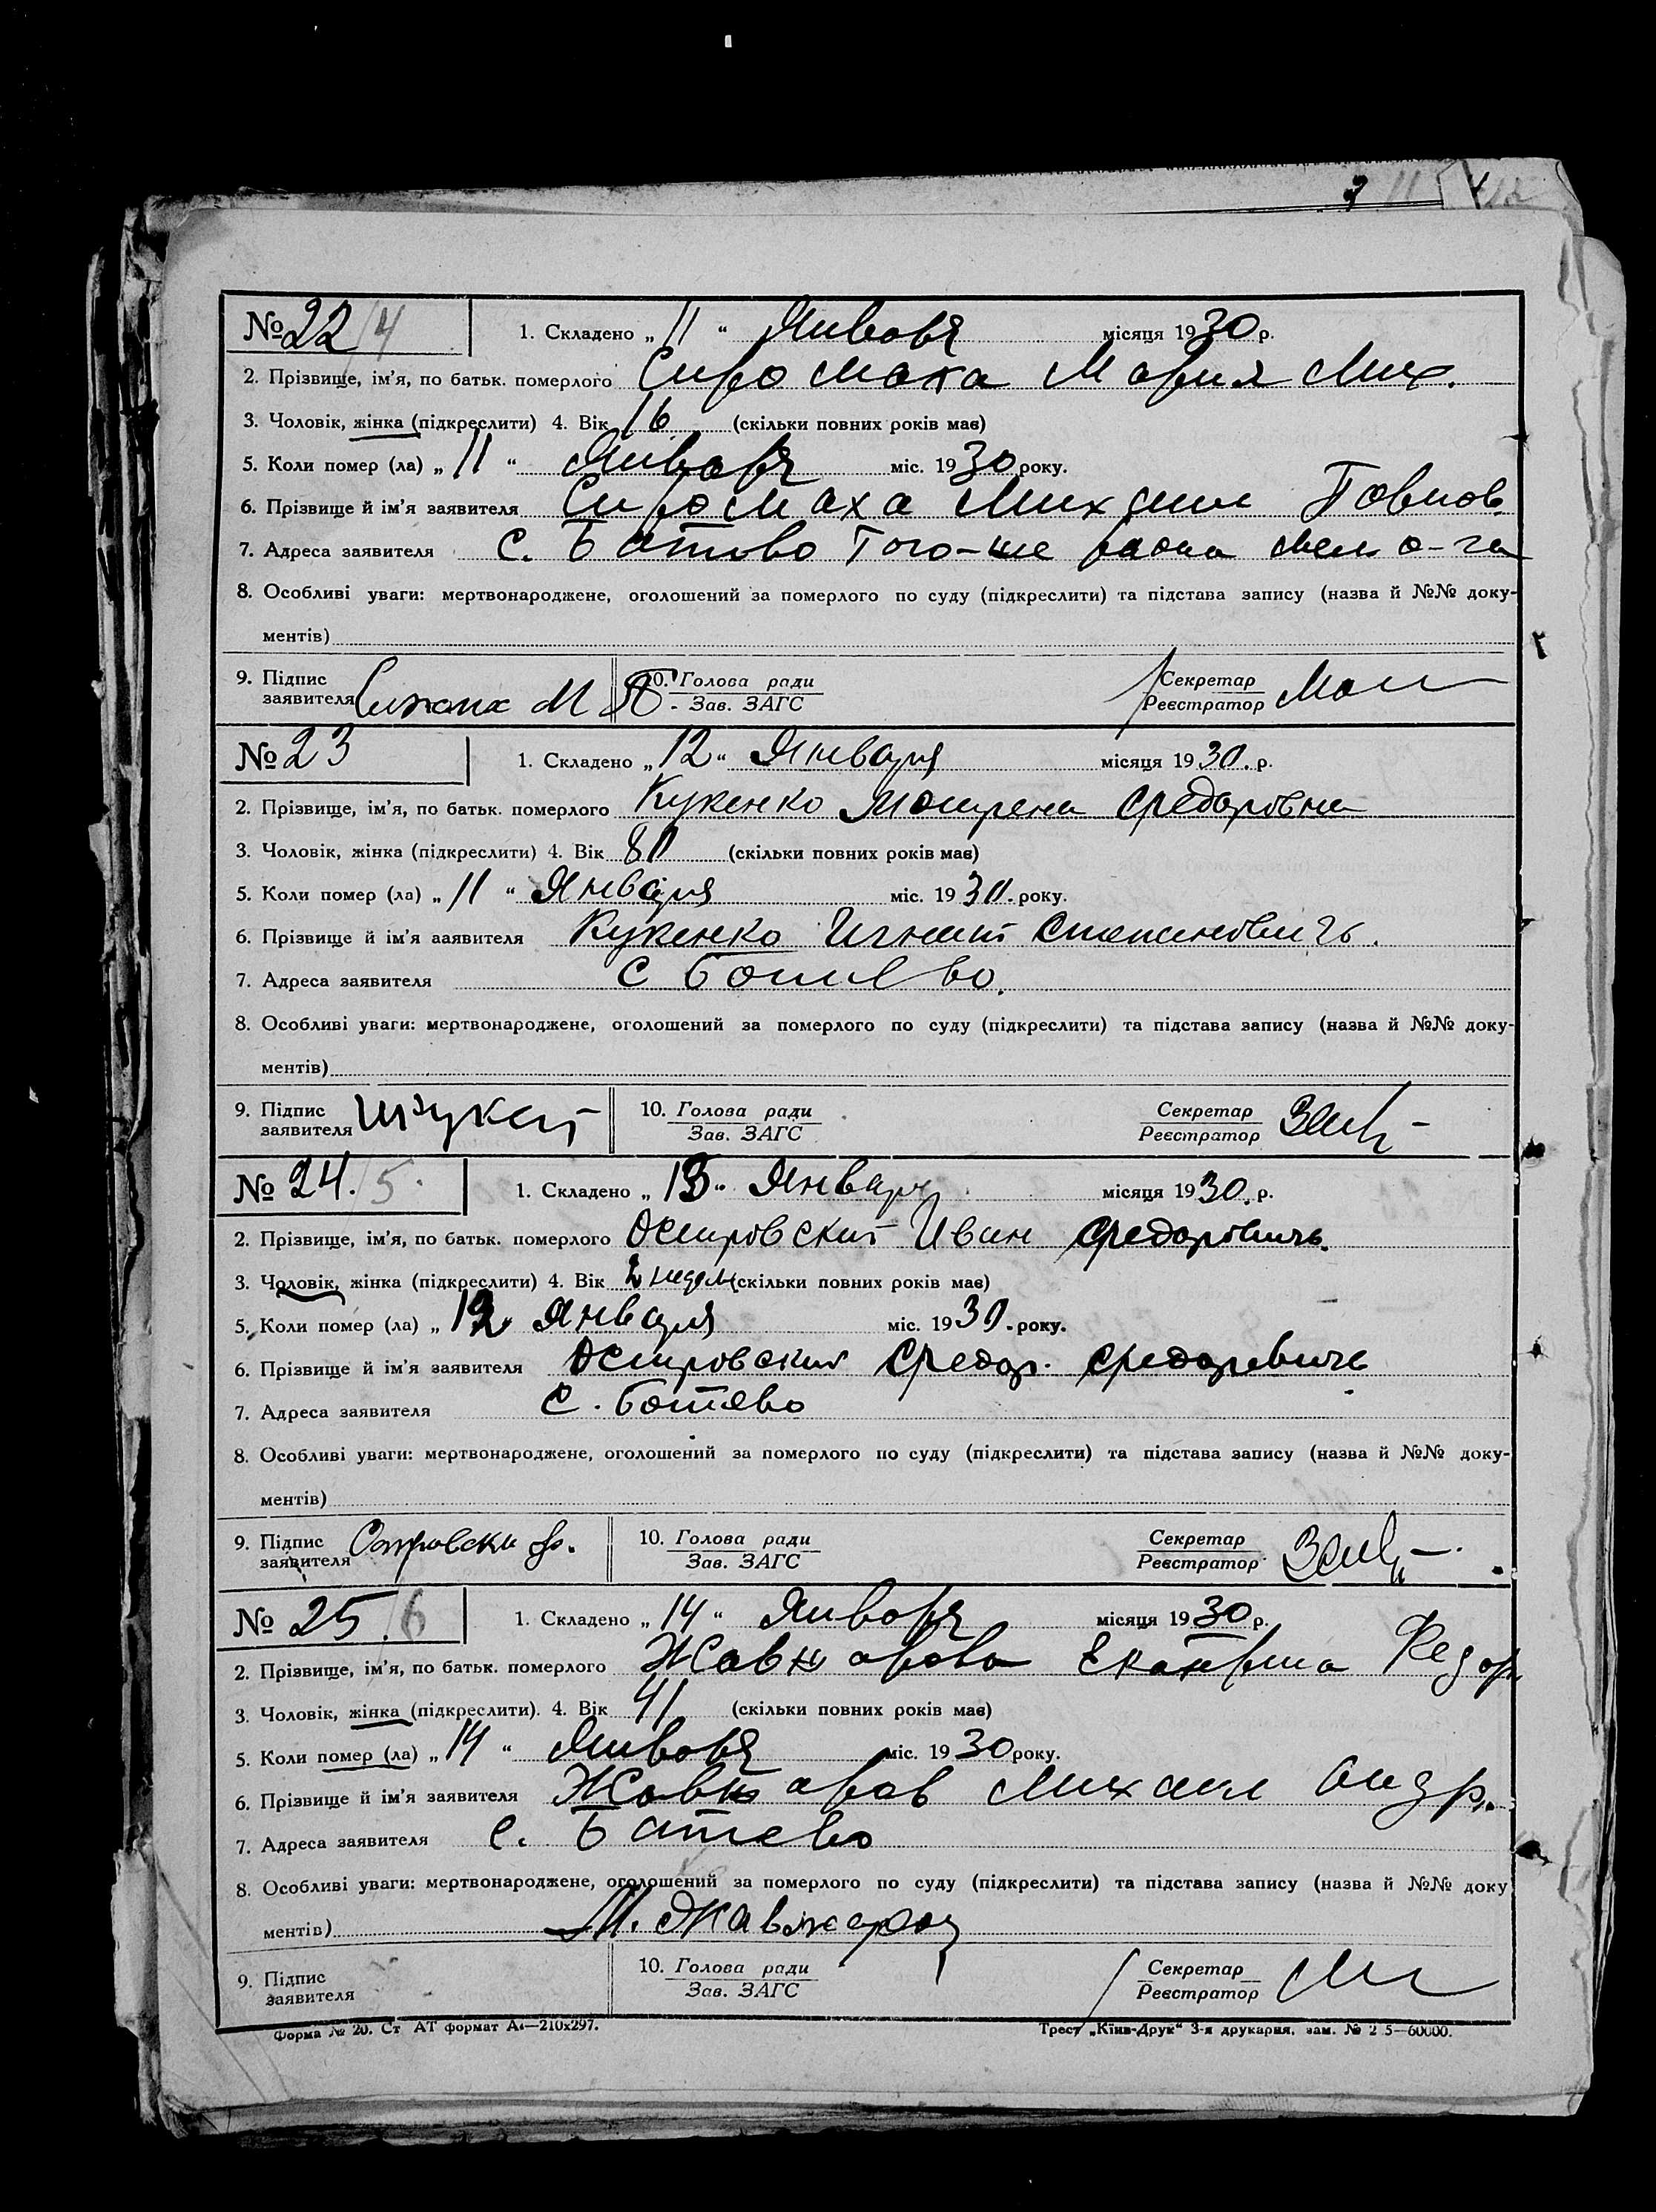 № 22/4 1. Складено „11“ Января місяця 1930 р.
2. Прізвище, ім'я, по батьк. померлого Сиромаха Мария Мих.
3. Чоловік, жінка (підкреслити) 4. Вік 16 (скільки повних років має)
5. Коли помер (ла) „11“ Января міс. 1930 року.
6. Прізвище й ім'я заявителя Сиромаха Михаил Павлов.
7. Адреса заявителя с. Батево Того-же
8. Особливі уваги: мертвонароджене, оголошений за померлого по суду (підкреслити) та підстава запису (назва й №№ доку-
ментів)
9. Підпис заявителя 10. Голова ради Секретар
Зав. ЗАГС Реєстратор
№ 23 1. Складено „12“ Января місяця 1930. р.
2. Прізвище, ім'я, по батьк. померлого Кукенко Федоровна
3. Чоловік, жінка (підкреслити) 4. Вік 80 (скільки повних років має)
5. Коли помер (ла) „11“ Января міс. 1930. року.
6. Прізвище й ім'я ааявителя Кукенко Игнат Степановичь.
7. Адреса заявителя с Ботиево.
8. Особливі уваги: мертвонароджене, оголошений за померлого по суду (підкреслити) та підстава запису (назва й №№ доку-
ментів)
9. Підпис заявителя 10. Голова ради Секретар
Зав. ЗАГС Реєстратор
№ 24./5. 1. Складено „13“ Января місяця 1930. р.
2. Прізвище, ім'я, по батьк. померлого Островский Иван Федоровичь.
3. Чоловік, жінка (підкреслити) 4. Вік 2 недели (скільки повних років має)
5. Коли помер (ла) „12 Января міс. 1930. року.
6. Прізвище й ім'я заявителя Островский Федор. Федоревичь
7. Адреса заявителя с. Ботево
8. Особливі уваги: мертвонароджене, оголошений за померлого по суду (підкреслити) та підстава запису (назва й №№ доку-
ментів)
9. Підпис заявителя Островски Ф. 10. Голова ради Секретар
Зав. ЗАГС Реєстратор
№ 25./6 1. Складено „14“ Января місяця 1930 р.
2. Прізвище, ім'я, по батьк. померлого Жавжарова Екатрина Федор
3. Чоловік, жінка (підкреслити). 4. Вік 41 (скільки повних років має)
5. Коли помер (ла) „14“ Января міс. 1930 року.
6. Прізвище й ім'я заявителя Жавжаров Михаил Андр.
7. Адреса заявителя с. Батиево
8. Особливі уваги: мертвонароджене, оголошений за померлого по суду (підкреслити) та підстава запису (назва й №№ доку
ментів) М. Жавжаров
9. Підпис заявителя 10. Голова ради Секретар
Зав. ЗАГС Реєстратор
Форма № 20. Ст АТ формат А4—210х297. Трест „Київ-Друк“ 3-я друкарня, зам. № 2 5—60000.